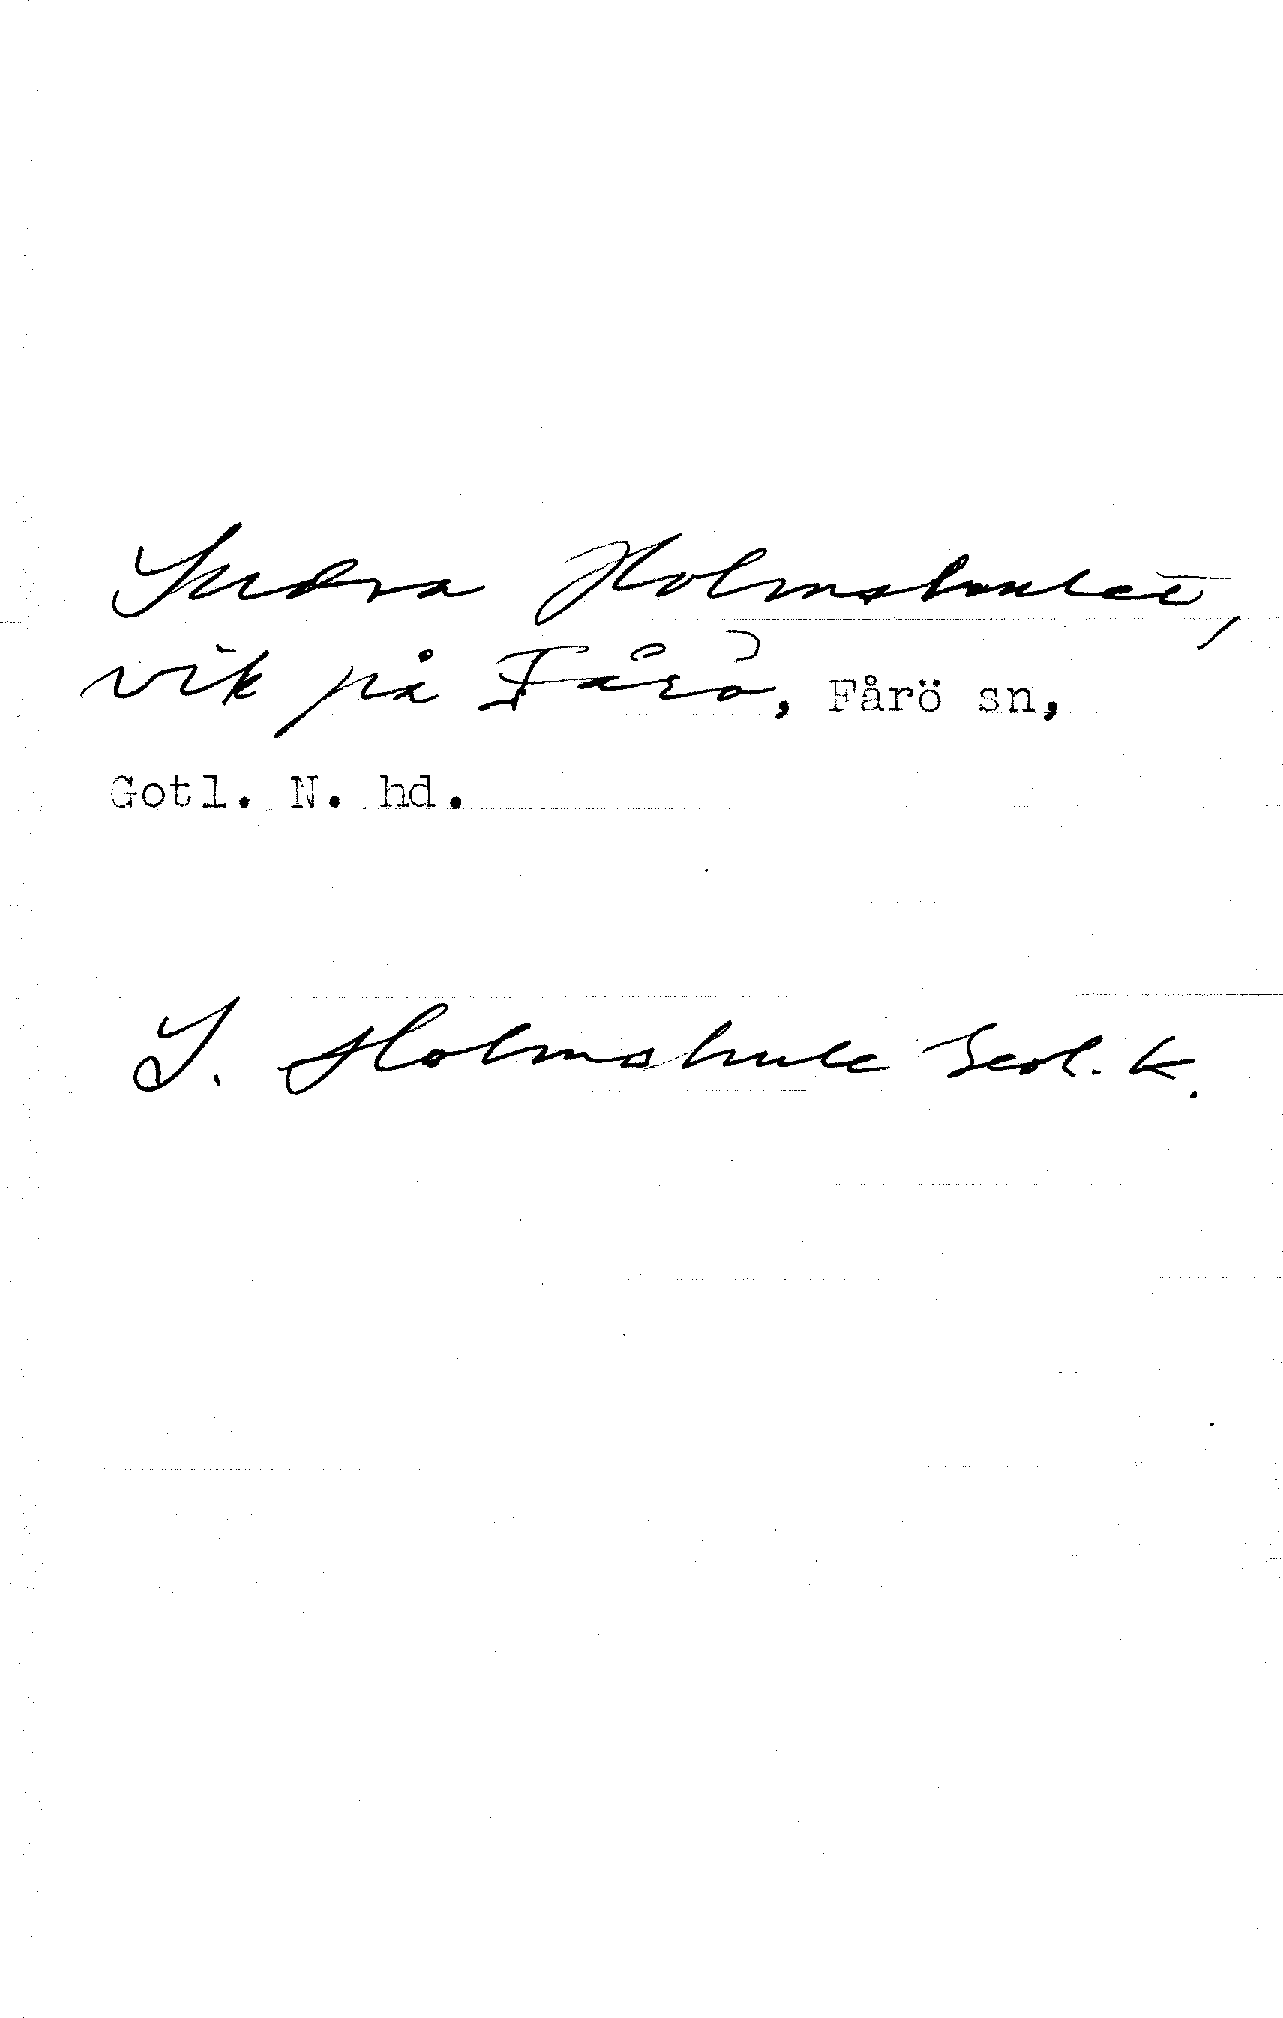 Indra Holmshulet,
vik på Fårö, Fårö sn,
Gotl. N. hd.
I. Holmshule Geol. k.